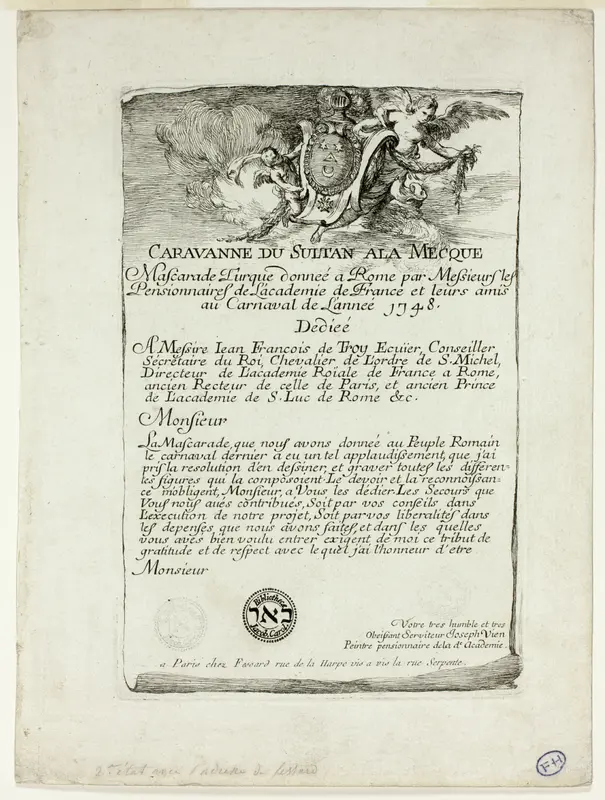 CARAVANNE DU SULTAN ALA MECQUE
Mascarade Turque donneé a Rome par Messieurs les
Pensionnaires de L'academie de France et leurs amis
au Carnaval de L'anneé 1748.
Dedieé
A Messire Iean Francois de Troy Ecuier, Conseiller
Sécrétaire du Roi, Chevalier de L'ordre de S. Michel,
Directeur de L'academie Roïale de France a Rome,
ancien Recteur de celle de Paris, et ancien Prince
de L'academie de S. Luc de Rome &c.
Monsieur
La Mascarade, que nous avons donneé au Peuple Romain
le carnaval dernier a eu un tel applaudissement, que j'ai
pris la resolution d'en dessiner, et graver toutes les differen=
tes figures qui la composoient. Le devoir et la reconnoissan=
ce m'obligent, Monsieur, a Vous les dedier. Les Secours que
Vous nous aués contribués, Soit par vos conseils dans
L'execution de notre projet, Soit par vos liberalités dans
les depenses, que nous avons faites, et dans les quelles
vous avés bien voulu entrer exigent de moi ce tribut de
gratitude et de respect avec lequel j'ai l'honneur d'etre
Monsieur
Votre tres humble et tres
Obeissant Serviteur Joseph Vien
Peintre pensionnaire de la de. Academie.
a Paris chez Fessard rue de la Harpe vis a vis la rue Serpente.
Bibliotheca
א
Jacob.
2e état avec l'adresse de Fessard
FH